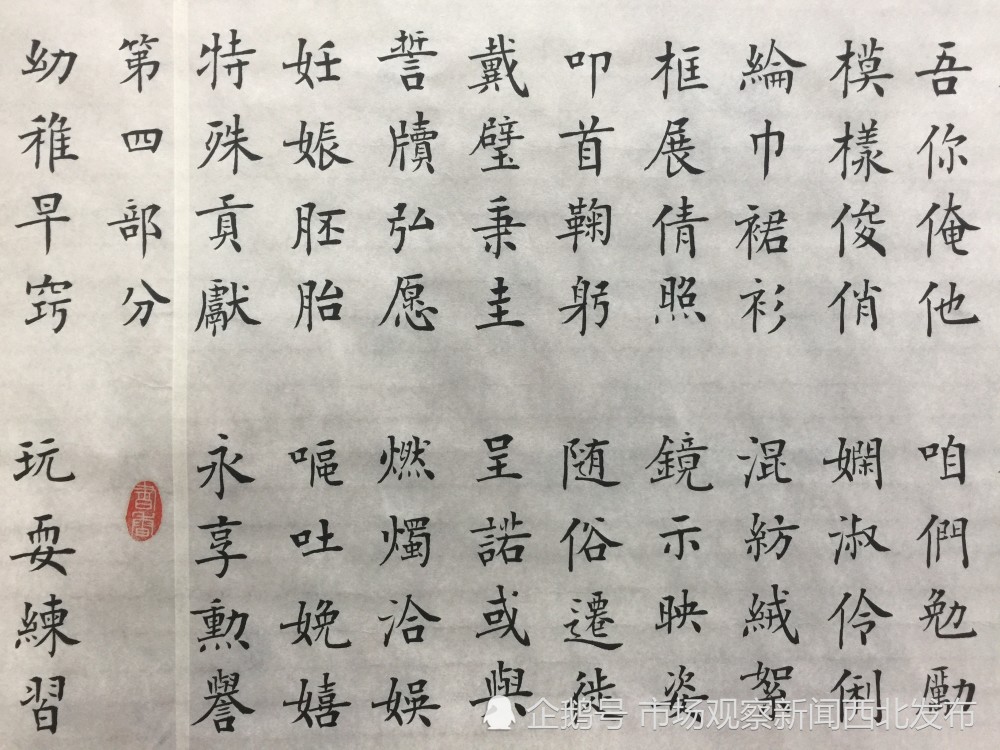 吾你俺他 咱們勉勵
模樣俊俏 嫻淑伶俐
綸巾裙衫 混紡絨絮
框展倩照 鏡示映姿
叩首鞠躬 随俗遷徙
戴璧秉圭 呈諾或與
誓牘弘愿 燃燭洽娛
妊娠胚胎 嘔吐娩嬉
特殊貢獻 永享勳譽
第四部分
書香
幼稚早窍 玩耍練習
企鹅号 市场观察新闻西北发布